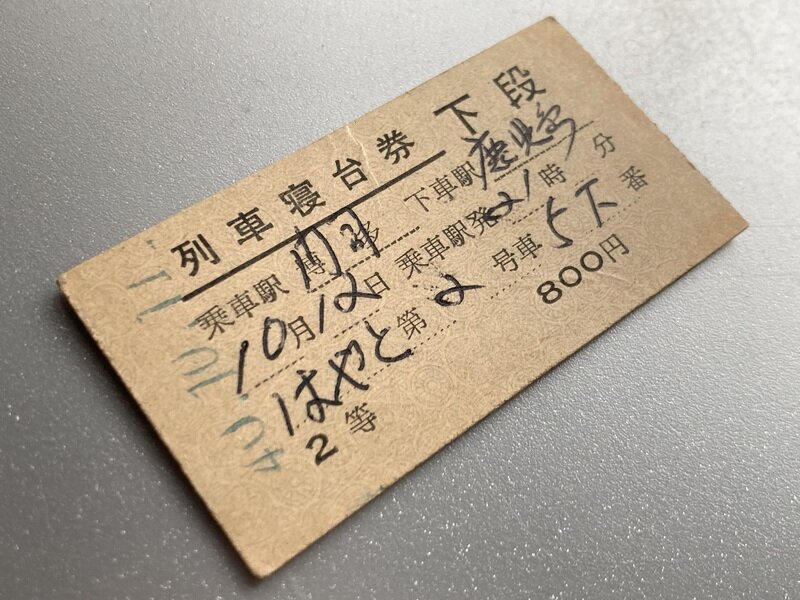 列車寝台券 下段
乗車駅 博多 下車駅 鹿児島
10月12日 乗車駅発 21時 分
はやと 第 2 号車 5下 番
2等 800円
40.10.11